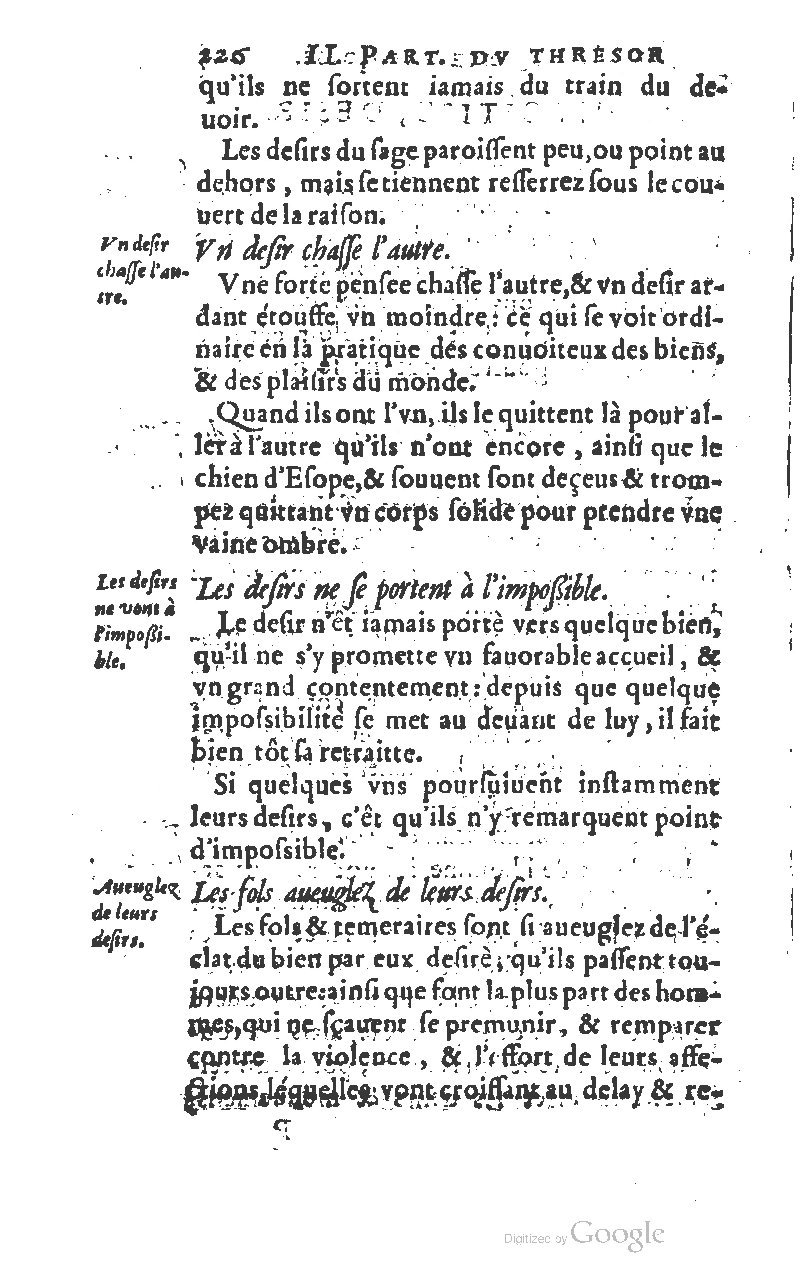 226 II. PART. DV THRESOR
qu'ils ne ſortent iamais du train du de-
uoir.
Les deſirs du ſage paroiſſent peu, ou point au
dehors, mais ſe tiennent reſſerrez ſous le cou-
uert de la raiſon.
Vn deſir
chaſſe l'au-
tre.
Vn deſir chaſſe l'autre.
Vne forte penſee chaſſe l'autre, & vn deſir ar-
dant étouffe vn moindre: ce qui ſe voit ordi-
naire en la pratique dés conuoiteux des biens,
& des plaiſirs du monde.
Quand ils ont l'vn, ils le quittent là pour al-
ler à l'autre qu'ils n'ont encore, ainſi que le
chien d'Eſope, & ſouuent ſont deçeus & trom-
pez quittant vn corps ſolide pour prendre vne
vaine ombre.
Les deſirs
ne vont à
l'impoßi-
ble.
Les deſirs ne ſe portent à l'impoßible.
Le deſir n'êt iamais portè vers quelque bien,
qu'il ne s'y promette vn fauorable accueil, &
vn grand contentement: depuis que quelque
impoſsibilité ſe met au deuant de luy, il fait
bien tôt ſa retraitte.
Si quelques vns pourſuiuent inſtamment
leurs deſirs, c'êt qu'ils n'y remarquent point
d'impoſsible.
Aueuglez
de leurs
deſirs.
Les fols aueuglez de leurs deſirs.
Les fols & temeraires ſont ſi aueuglez de l'é-
clat du bien par eux deſirè, qu'ils paſſent tou-
jours outre: ainſi que font la plus part des hom-
mes, qui ne ſçauent ſe premunir, & remparer
contre la violence, & l'effort de leurs affe-
ctions, léquelles vont croiſſant au delay & re-
Digitized by Google